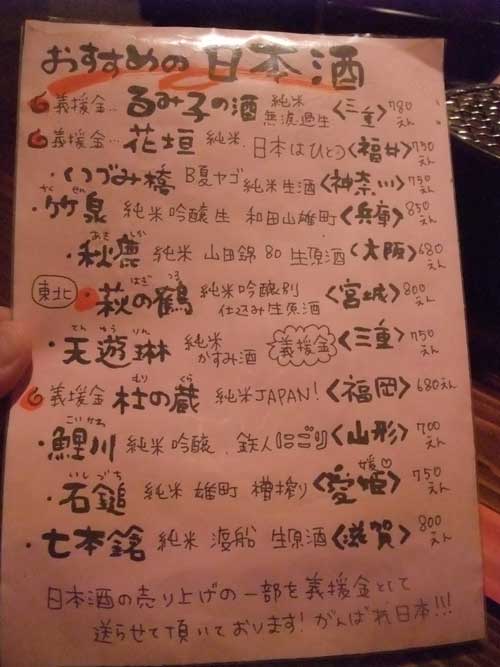 おすすめの日本酒
義援金… るみ子の酒 純米 無濾過生 〈三重〉 780えん
義援金… 花垣 純米. 日本はひとつ 〈福井〉 750えん
・くづみ橋 B夏ヤゴ 純米生酒 〈神奈川〉 750えん
・竹泉 純米吟醸生 和田山雄町 〈兵庫〉 850えん
・秋鹿 あきしか 純米 山田錦80 生原酒 〈大阪〉 680えん
東北 ・萩の鶴 はぎ つる 純米吟醸別仕込み生原酒 〈宮城〉 800えん
・天遊琳 てんゆうりん 純米かすみ酒 義援金 〈三重〉 750えん
義援金 杜の蔵 もり くら 純米JAPAN! 〈福岡〉 680えん
・鯉川 こいかわ 純米吟醸. 鉄人にごり 〈山形〉 700えん
・石鎚 いしづち 純米 雄町 槽搾り 〈愛姫〉 媛♡ 750えん
・七本鎗 純米 渡船 生原酒 〈滋賀〉 800えん
日本酒の売り上げの一部を義援金として
送らせて頂いております! がんばれ日本!!!